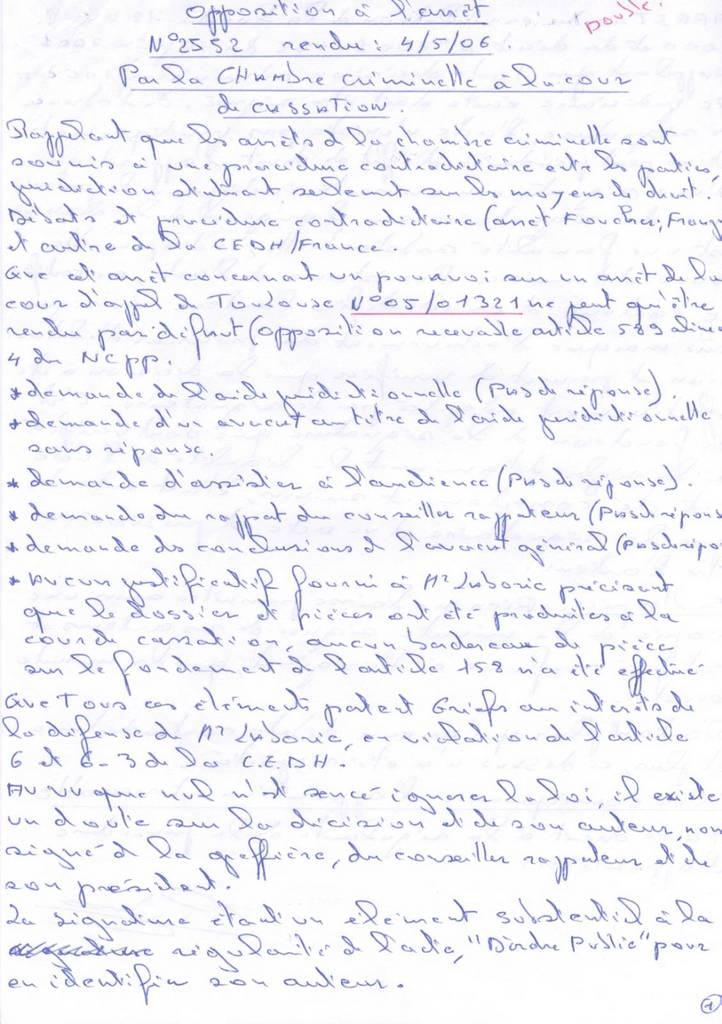 Opposition à l'arrêt
N°2552 rendu : 4/5/06.
Par la CHAMbre criminelle à la cour
de cassation.
Rappelant que les arrêts de la chambre criminelle sont
soumis à une procédure contradictoire entre les parties,
juridiction statuant seulement sur les moyens de droit.
Débats et procédure contradictoire (arrêt Foucher, Franç
et autre de la CEDH/France.
Que cet arrêt concernant un pourvoi sur un arrêt de la
cour d'appel de Toulouse N°05/01321 ne peut qu'être
rendu par défaut (opposition recevable article 589
4 du NCPP.
* demande de l'aide juridictionnelle (Pas de réponse).
* demande d'un avocat au titre de l'aide juridictionnelle
sans réponse.
* demande d'assister à l'audience (Pas de réponse).
* demande du rapport du conseiller rapporteur (Pas de répons
* demande des conclusions de l'avocat général (Pas de répo
* Aucun justificatif fourni à Mr précisant
que le dossier et pièces ont été produites à la
cour de cassation, aucun bordereau de pièce
sur le fondement de l'article 158 n'a été effectué
Que Tous ces éléments portent Griefs aux intérêts de
la défense de Mr en violation de l'article
6 et 6-3 de la CEDH.
Au vu que nul n'est sencé ignorer la loi, il existe
un doute sur la décision et de son auteur, non
signé de la greffière, du conseiller rapporteur et de
son président.
La signature étant un élément substentiel à la
régularité de l'acte, "D'ordre Public" pour
en identifier son auteur.
1